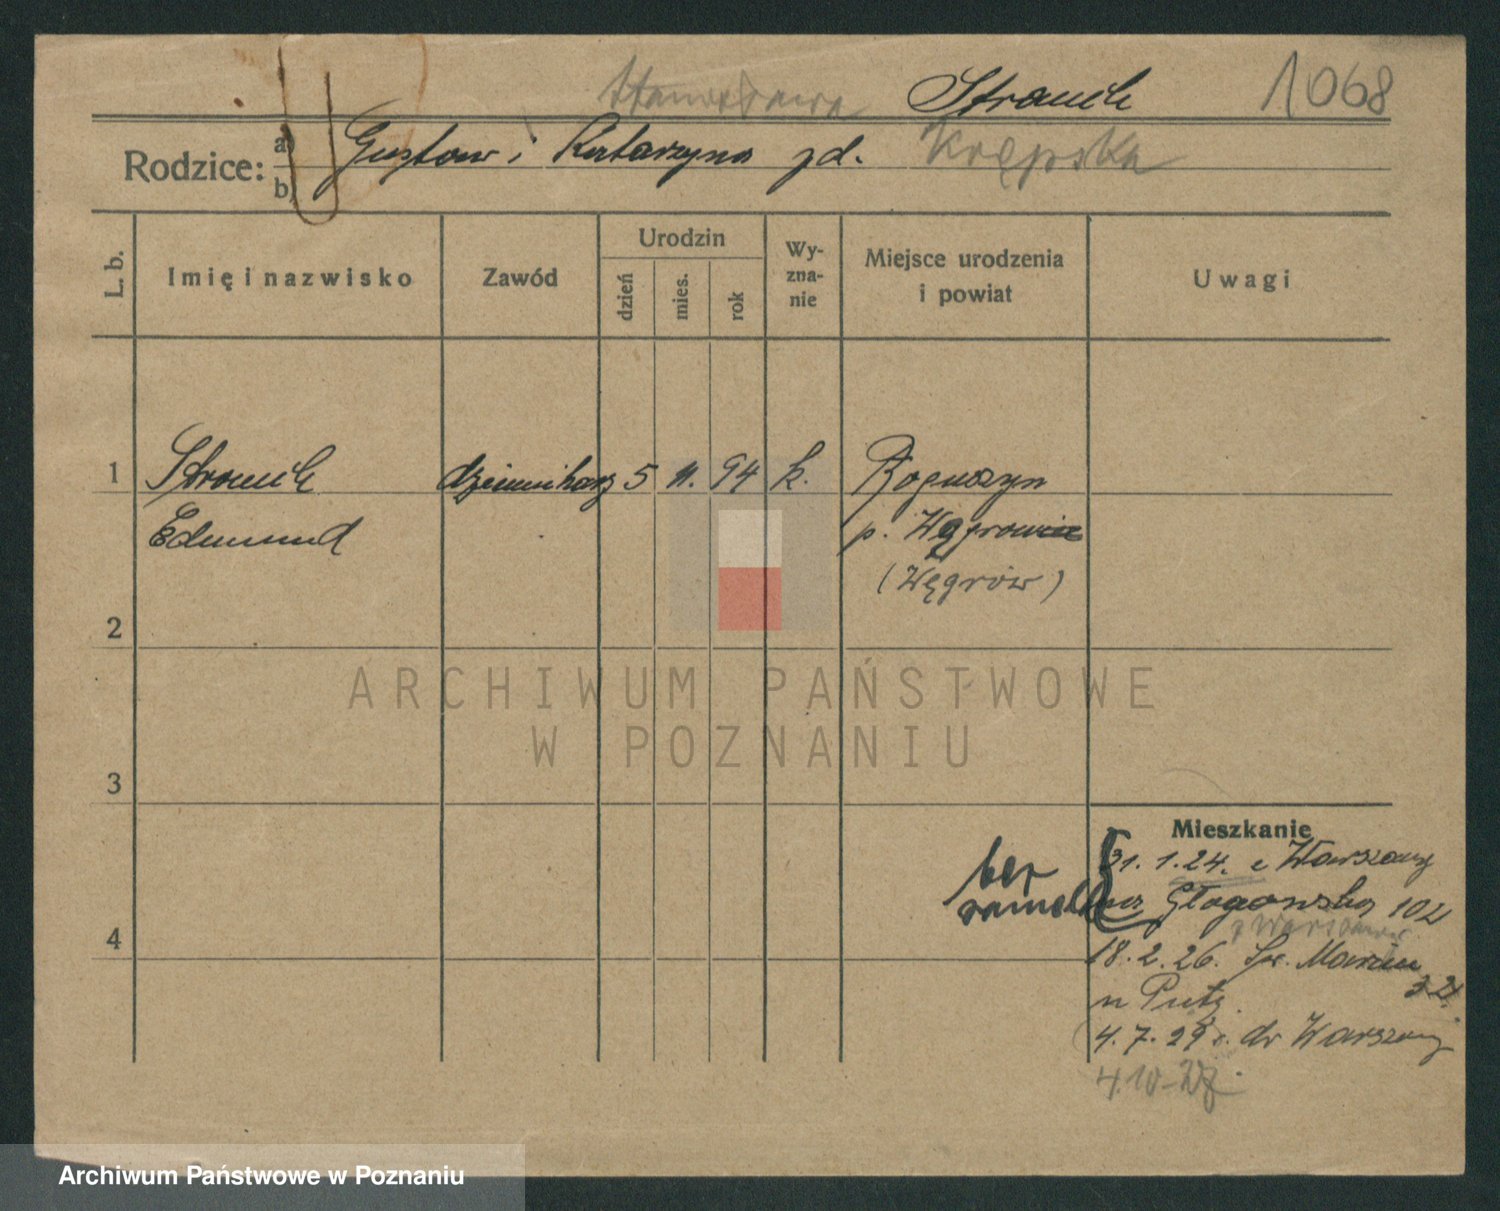 Stanisława Strauch 1068
Rodzice: a) Gustaw i Katarzyna zd. Krępska
b)
L. b.
Imię i nazwisko
Zawód
Urodzin
dzień
mies.
rok
Wy-
zna-
nie
Miejsce urodzenia
i powiat
Uwagi
1 Strauch dziennikarz 5 11. 94 k. Boguszyn
Edmund p. Węgrowie
(Węgrów)
2
ARCHIWUM PAŃSTWOWE
W POZNANIU
3
Mieszkanie
bez 31. 1. 24. z Warszawy
Głogowska 102
z Warszawy
4
18. 2. 26. Św. Marcin
32.
u Putz.
4. 7. 29 r. do Warszawy
4.10-27.
Archiwum Państwowe w Poznaniu